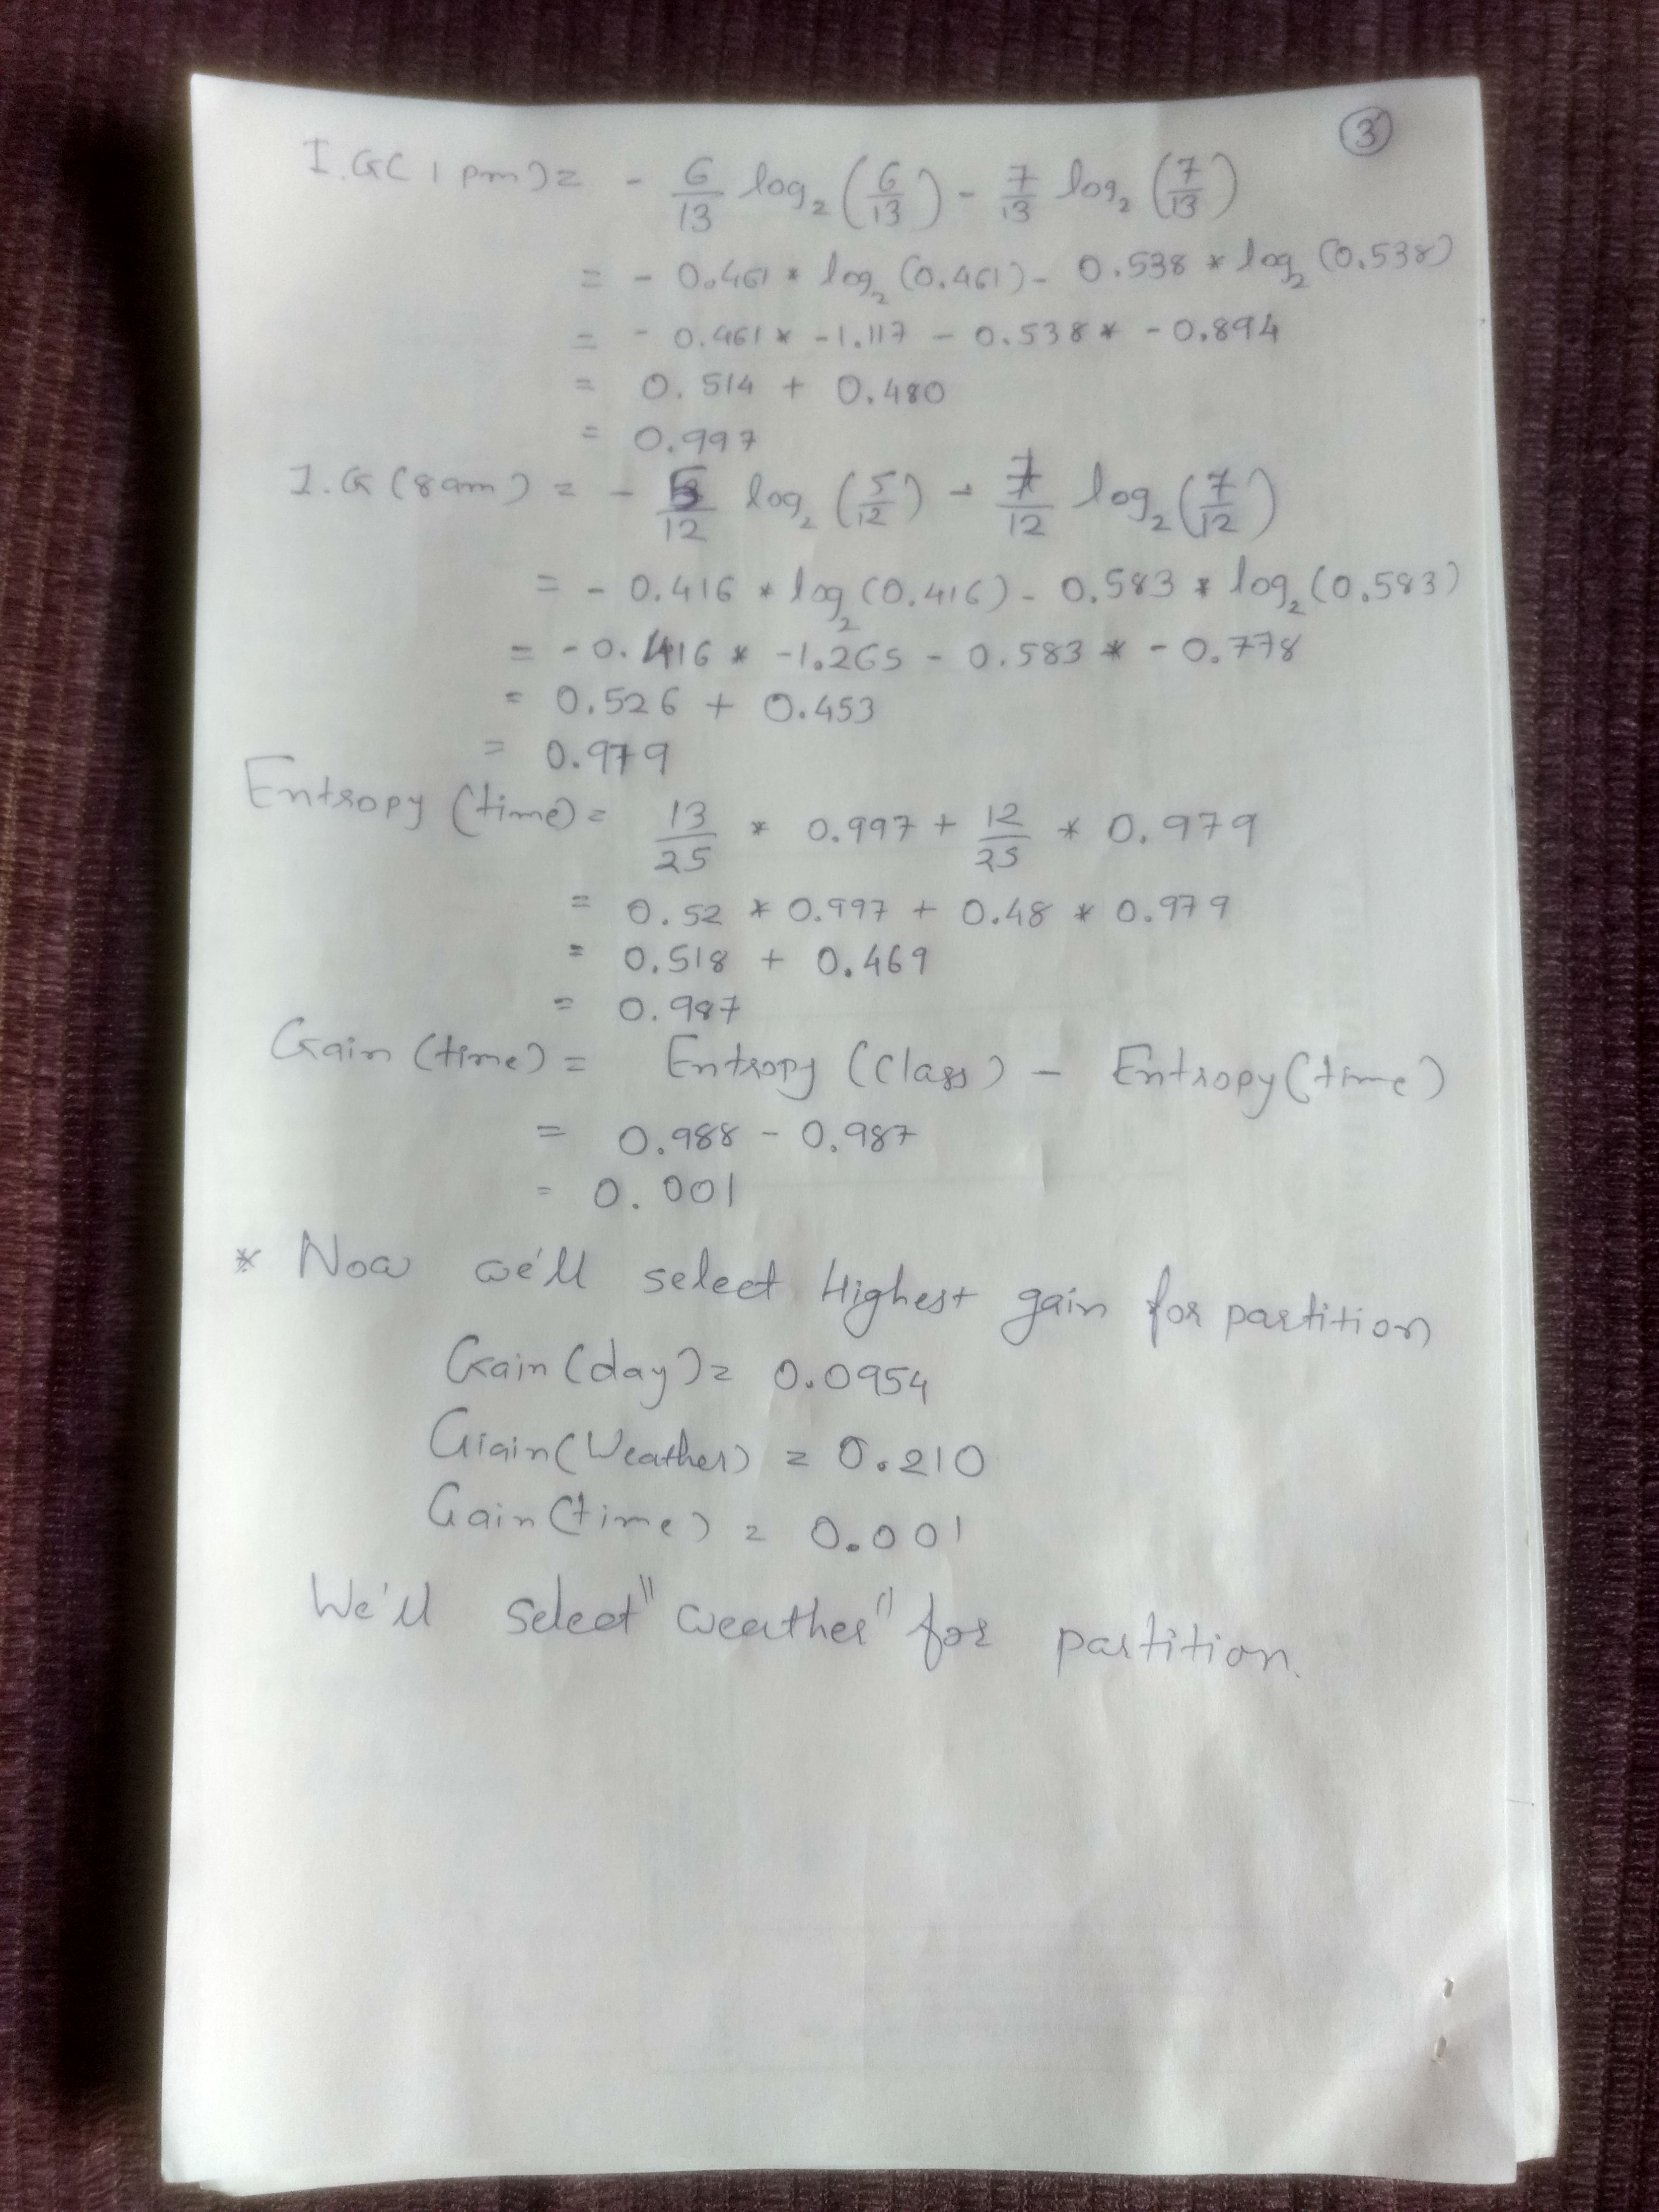 3
I.G(1 pm) = - 6/13 log₂ (6/13) - 7/13 log₂ (7/13)
= - 0.461 * log₂ (0.461) - 0.538 * log₂ (0.538)
= - 0.461 * -1.117 - 0.538 * - 0.894
= 0.514 + 0.480
= 0.997
I.G (8 am) = - 5/12 log₂ (5/12) - 7/12 log₂ (7/12)
= - 0.416 * log₂ (0.416) - 0.583 * log₂ (0.583)
= - 0.416 * -1.265 - 0.583 * - 0.778
= 0.526 + 0.453
= 0.979
Entropy (time) = 13/25 * 0.997 + 12/25 * 0.979
= 0.52 * 0.997 + 0.48 * 0.979
= 0.518 + 0.469
= 0.987
Gain (time) = Entropy (Class) - Entropy (time)
= 0.988 - 0.987
= 0.001
* Now we'll select Highest gain for partition
Gain (day) = 0.0954
Gain (Weather) = 0.210
Gain (time) = 0.001
We'll select "weather" for partition.